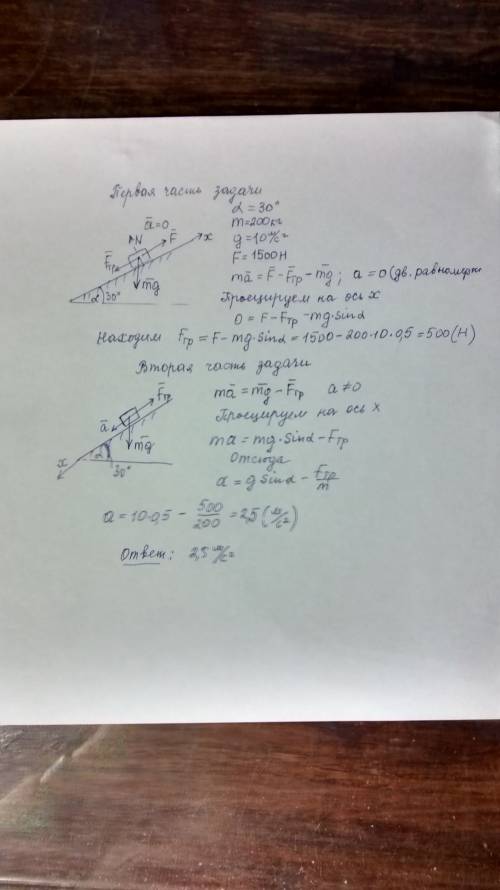 Первая часть задачи
ā=0
N̄
F̄
x
F̄тр
mḡ
α 30°
α = 30°
m=200кг
g=10 м/с²
F = 1500Н
mā = F̄ - F̄тр - mḡ ; a = 0 (дв. равномерн
Проецируем на ось x
0 = F - Fтр - mg·sinα
Находим Fтр = F - mg·sinα = 1500 - 200·10·0,5 = 500 (Н)
Вторая часть задачи
F̄тр
ā
mḡ
α
x
30°
mā = mḡ - F̄тр a ≠ 0
Проецируем на ось x
ma = mg·sinα - Fтр
Отсюда
a = g sinα - Fтр/m
a = 10·0,5 - 500/200 = 2,5 (м/с²)
Ответ: 2,5 м/с²